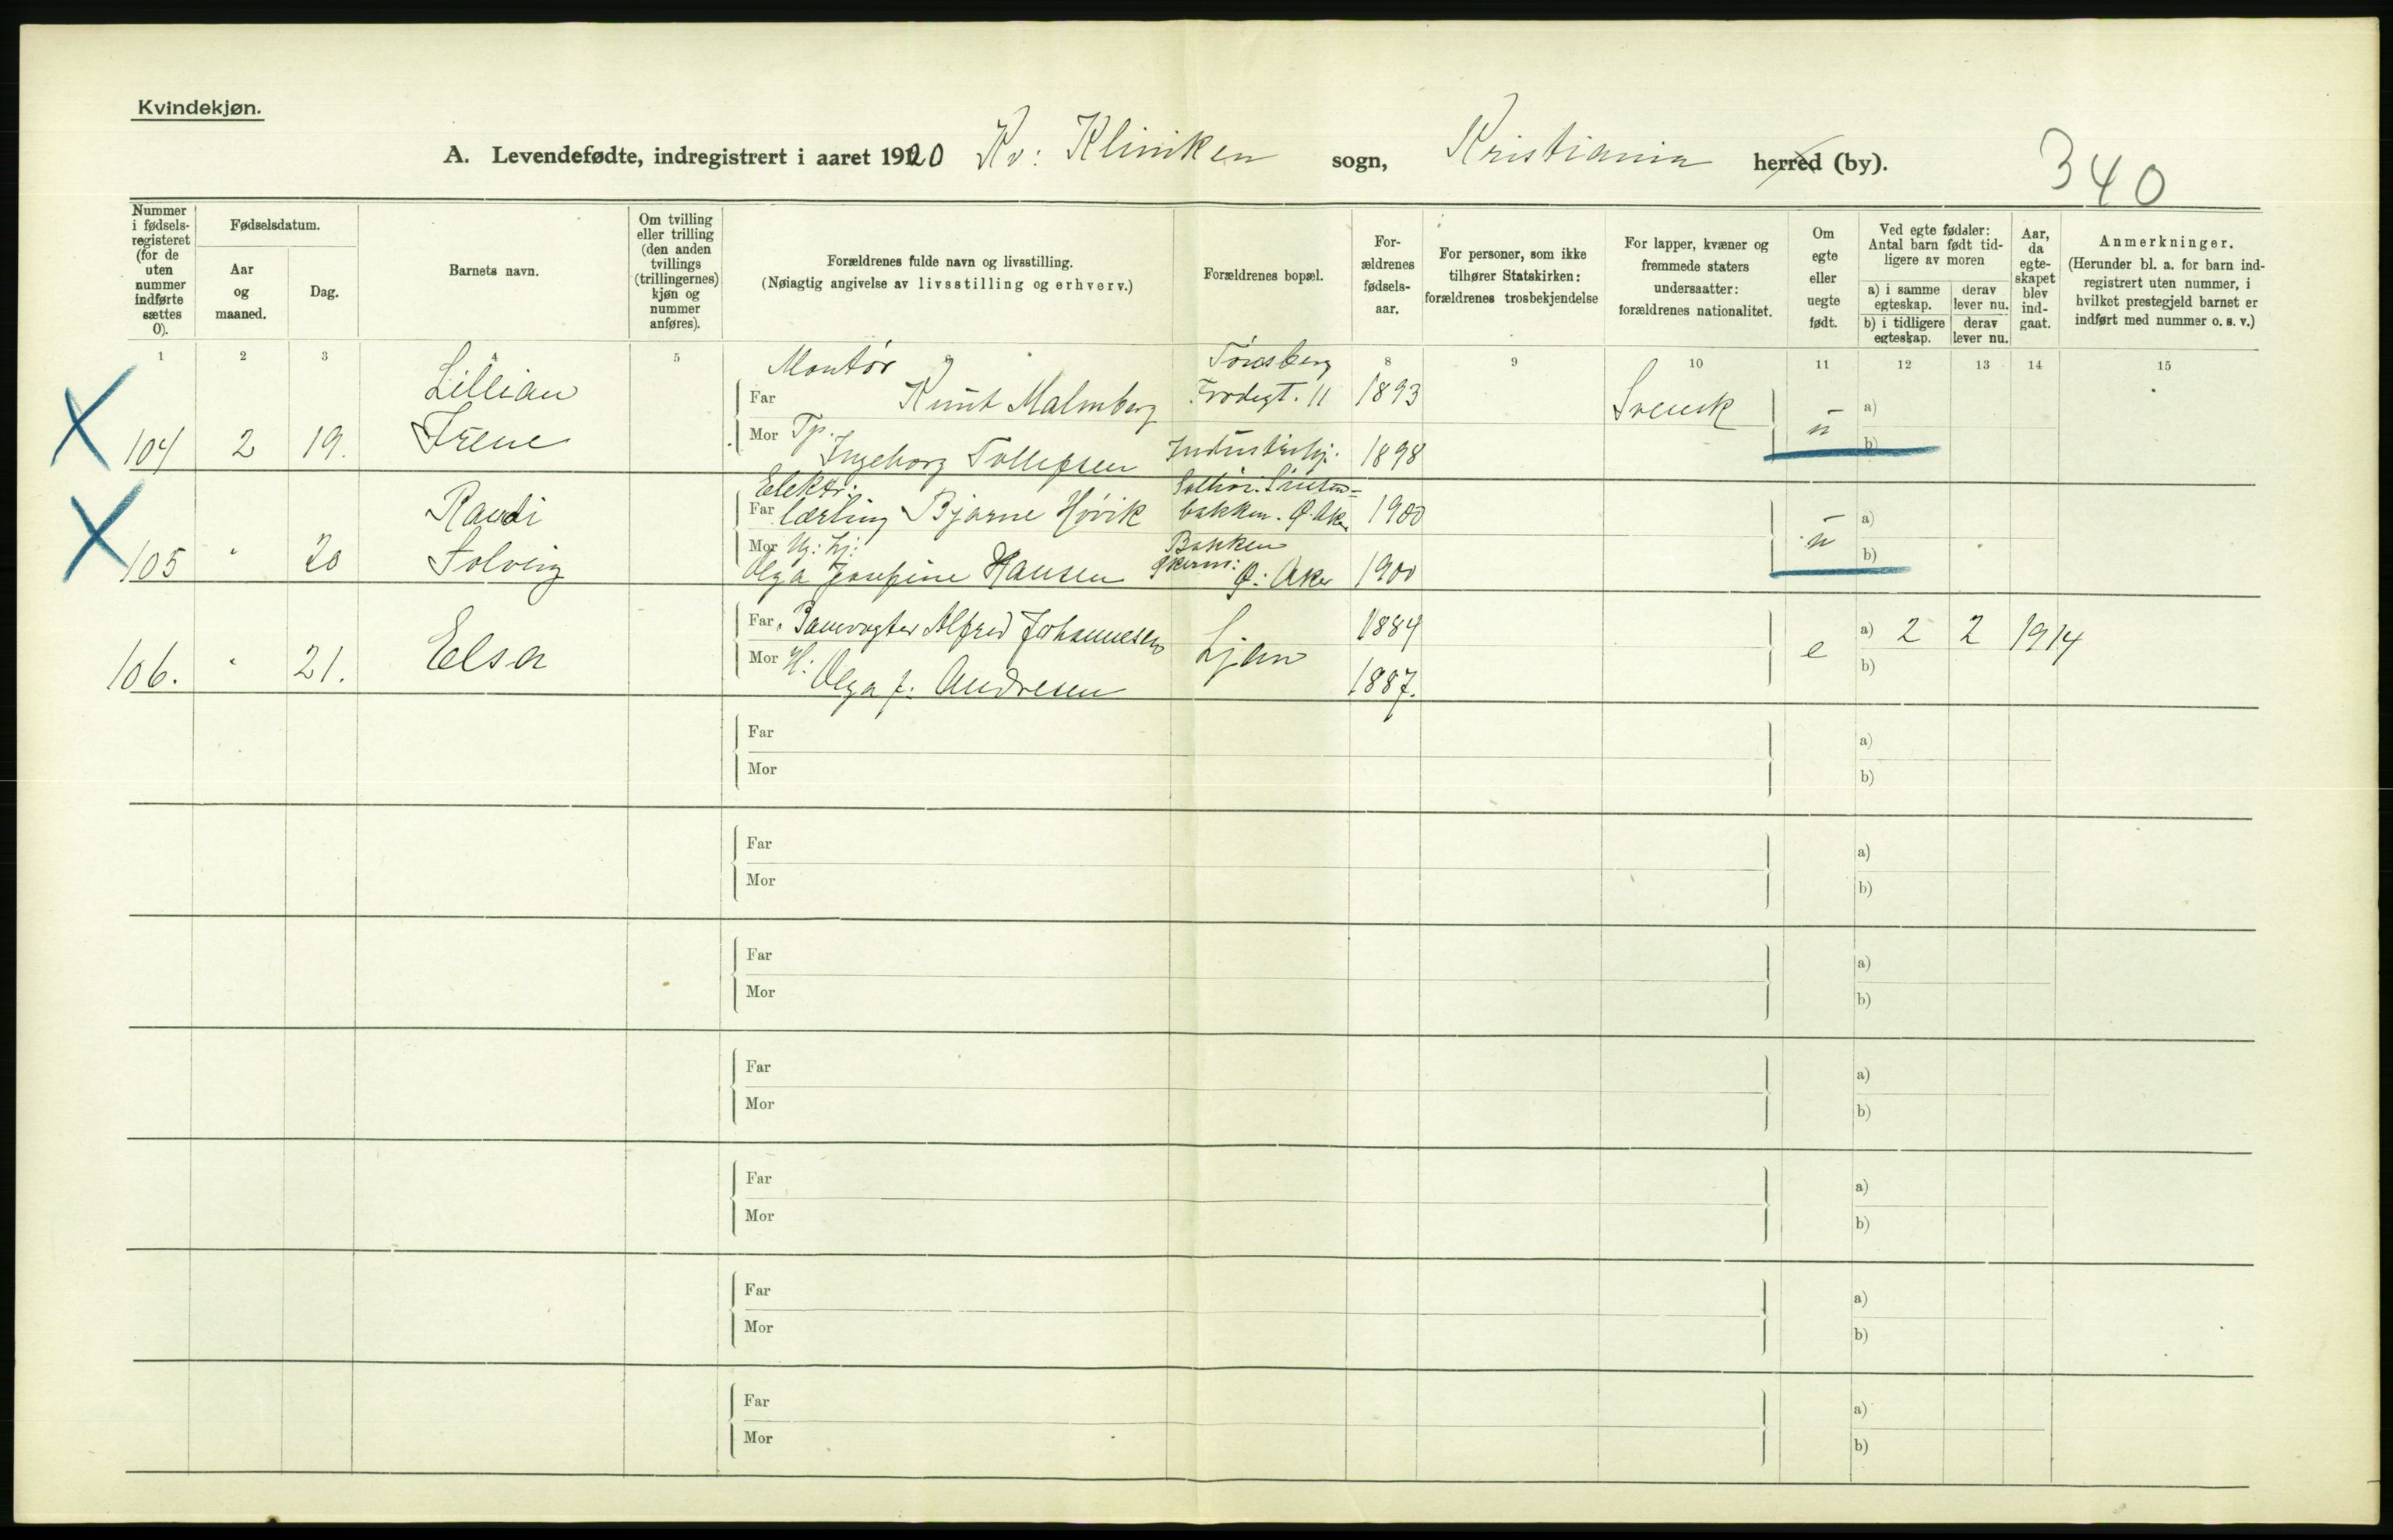 Kvindekjøn.
A. Levendefødte, indregistrert i aaret 1920 Kv: Kliniken sogn, Kristiania herred (by).
340
Nummer i fødsels-registeret (for de uten nummer indførte sættes 0).
Fødselsdatum.
Aar og maaned.
Dag.
Barnets navn.
Om tvilling eller trilling (den anden tvillings (trillingernes) kjøn og nummer anføres).
Forældrenes fulde navn og livsstilling.
(Nøiagtig angivelse av livsstilling og erhverv.)
Forældrenes bopæl.
For-ældrenes fødsels-aar.
For personer, som ikke tilhører Statskirken: forældrenes trosbekjendelse
For lapper, kvæner og fremmede staters undersaatter: forældrenes nationalitet.
Om egte eller uegte født.
Ved egte fødsler: Antal barn født tid-ligere av moren
a) i samme egteskap.
derav lever nu.
b) i tidligere egteskap.
derav lever nu.
Aar, da egte-skapet blev ind-gaat.
Anmerkninger.
(Herunder bl. a. for barn ind-registrert uten nummer, i hvilket prestegjeld barnet er indført med nummer o. s. v.)
1 2 3 4 5 6 8 9 10 11 12 13 14 15
X 104 2 19. Lillian Irene
Far Montør Knut Malmberg Tønsberg Frodegt. 11 1893 Svensk
Mor Tp. Ingeborg Tollefsen Industribj. 1898
u a)
b)
X 105 " 20 Randi Solveig
Far Elektr. lærling Bjarne Høvik bakken. Ø. Aker 1900
Mor Ug: Olga Josefine Hansen Bakken Ø: Aker 1900
u a)
b)
106. " 21. Elsa
Far Banevogter Alfred Johannesen Ljan 1884
Mor H: Olga f. Andresen 1887.
e a) 2 2 1914
b)
Far a)
Mor b)
Far a)
Mor b)
Far a)
Mor b)
Far a)
Mor b)
Far a)
Mor b)
Far a)
Mor b)
Far a)
Mor b)